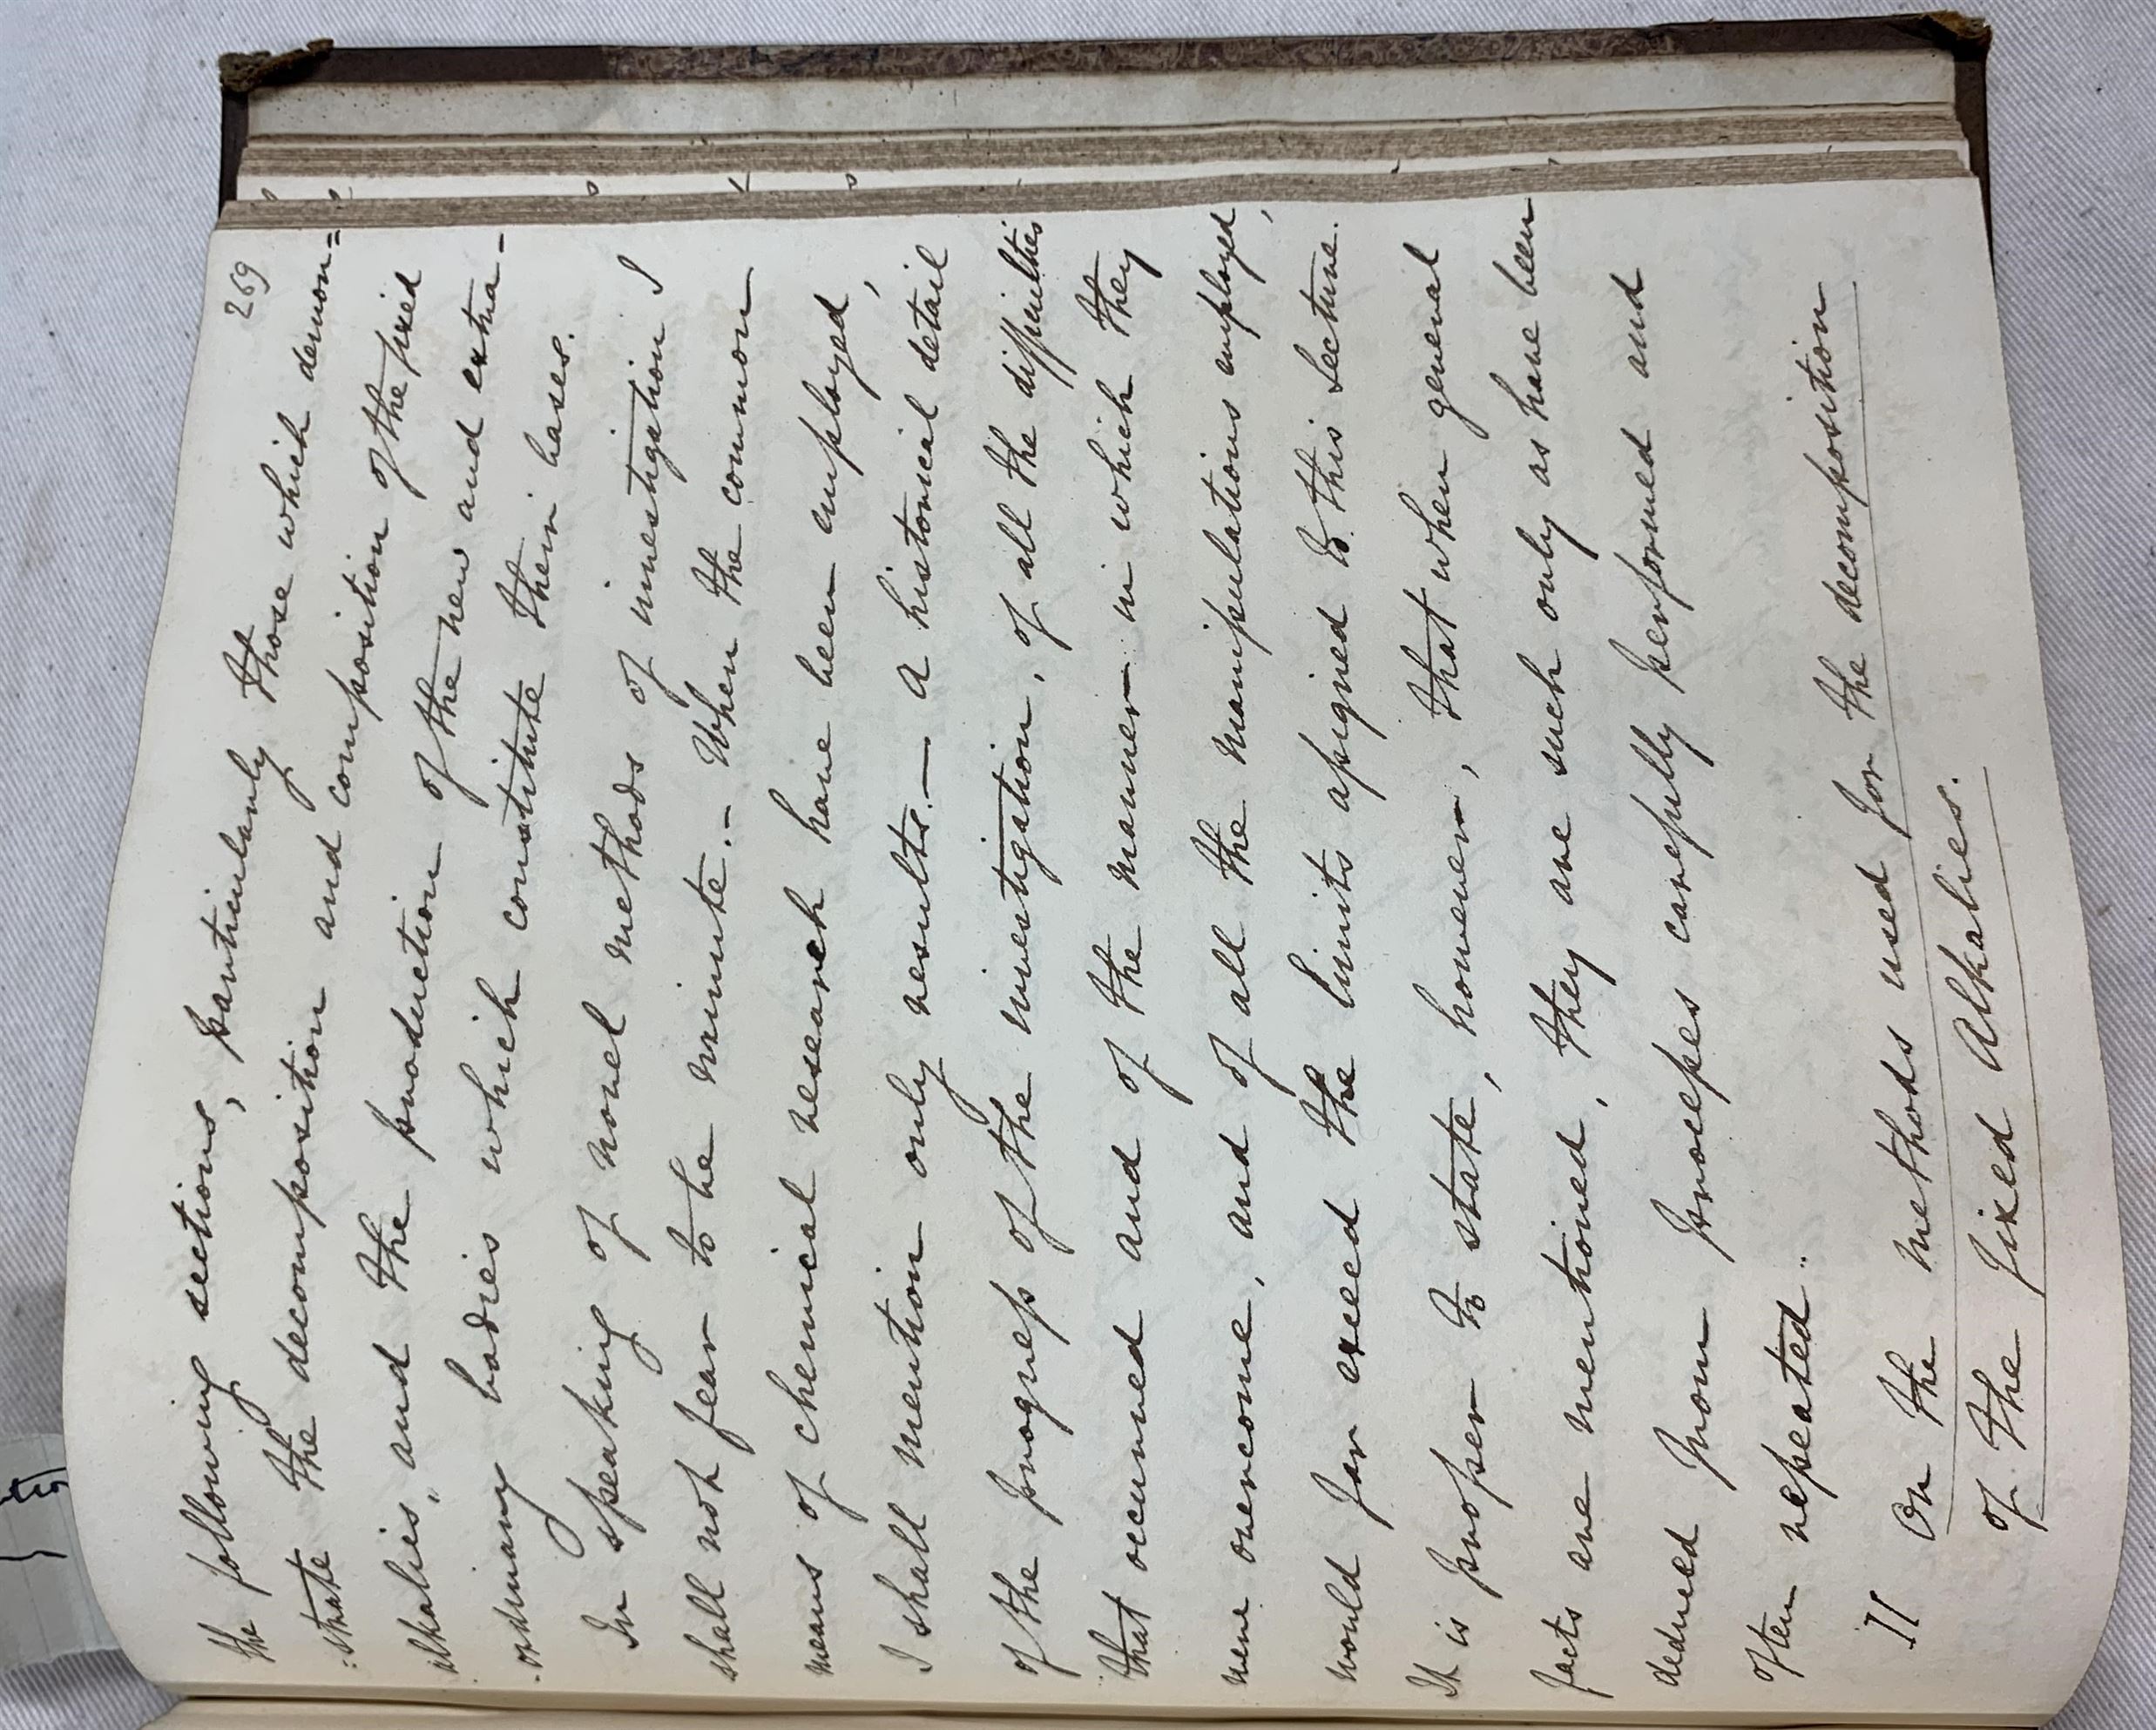 269
the following sections, particularly those which demon=
:strate the decomposition and composition of the fixed
alkalies, and the production of the new and extra-
-ordinary bodies which constitute their bases.
In speaking of novel methods of investigation I
shall not fear to be minute.- When the common
means of chemical research have been employed,
I shall mention only results.— A historical detail
of the progress of the investigation, of all the difficulties
that occurred and of the manner in which they
were overcome, and of all the manipulations employed,
would far exceed the limits assigned to this Lecture.
It is proper to state, however, that when general
facts are mentioned, they are such only as have been
deduced from processes carefully performed and
often repeated.
II On the methods used for the decomposition
of the fixed Alkalies.